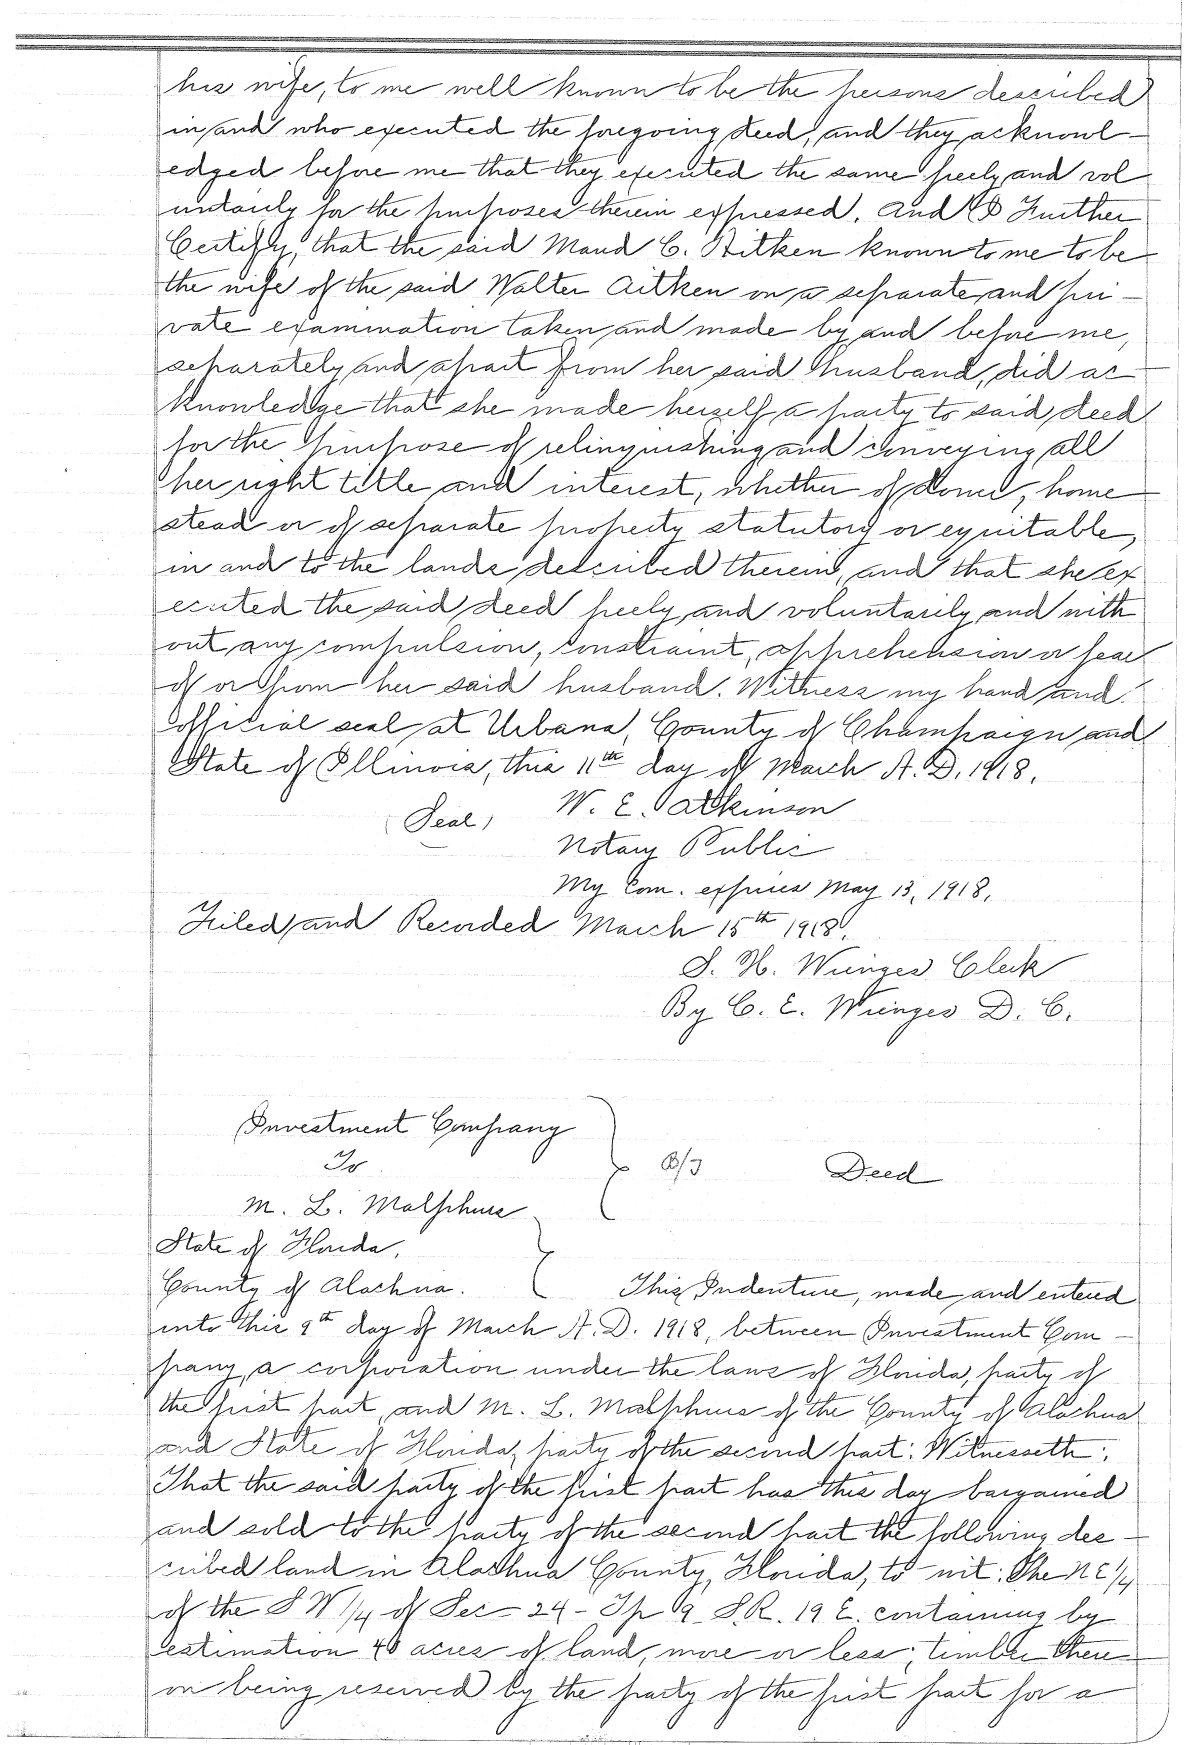 his wife, to me well known to be the persons described
in and who executed the foregoing deed, and they acknowl-
edged before me that they executed the same freely and vol
untarily for the purposes therein expressed. And I Further
Certify, that the said Maud C. Aitken known to me to be
the wife of the said Walter Aitken on a separate and pri-
vate examination taken and made by and before me,
separately and apart from her said husband, did ac-
knowledge that she made herself a party to said deed
for the purpose of relinquishing and conveying all
her right title and interest, whether of dower, home
stead or of separate property statutory or equitable,
in and to the lands described therein, and that she ex
ecuted the said deed freely and voluntarily and with
out any compulsion, constraint, apprehension or fear
of or from her said husband. Witness my hand and
official seal at Urbana, County of Champaign and
State of Illinois, this 11th day of March A.D. 1918.
(Seal) W. E. Atkinson
Notary Public
My Com. expires May 13, 1918.
Filed and Recorded March 15th 1918.
S. H. Wienges Clerk
By C. E. Wienges D. C.
Investment Company
To B/J Deed
M. L. Malphurs
State of Florida,
County of Alachua. This Indenture, made and entered
into this 9th day of March A.D. 1918, between Investment Com-
pany, a corporation under the laws of Florida, party of
the first part, and M. L. Malphurs of the County of Alachua
and State of Florida, party of the second part: Witnesseth:
That the said party of the first part has this day bargained
and sold to the party of the second part the following des-
cribed land in Alachua County, Florida, to wit: The NE 1/4
of the SW 1/4 of Sec- 24- Tp 9 S.R. 19 E. containing by
estimation 40 acres of land, more or less; timber there-
on being reserved by the party of the first part for a